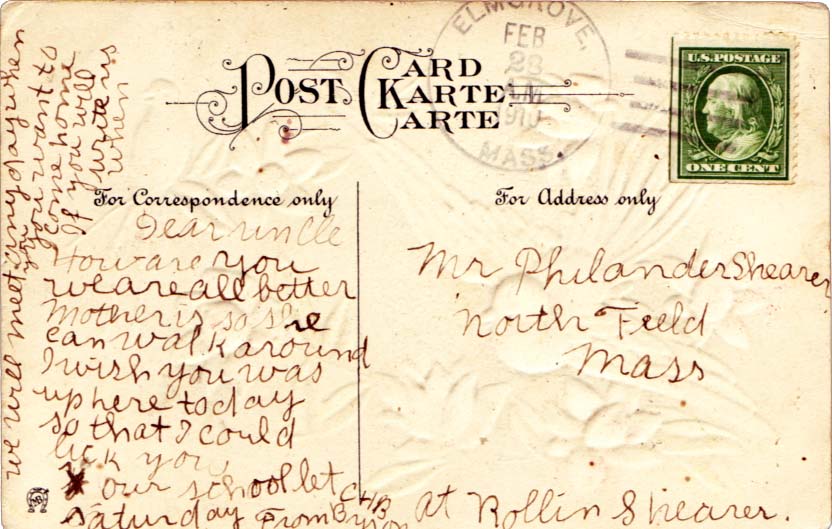 POST CARD
KARTE
CARTE
ELMGROVE,
FEB
28
A.M.
1910
MASS.
U.S. POSTAGE
ONE CENT
For Correspondence only
For Address only
Dear uncle
How are you
we are all better
Mother is so she
can walk around
I wish you was
up here today
so that I could
lick you
our school let
Saturday From Byron
CHB
we will meet
you any day when
you want to
come home
If you will
write us
when
Mr Philander Shearer
North Field
Mass
at Rollin Shearer.